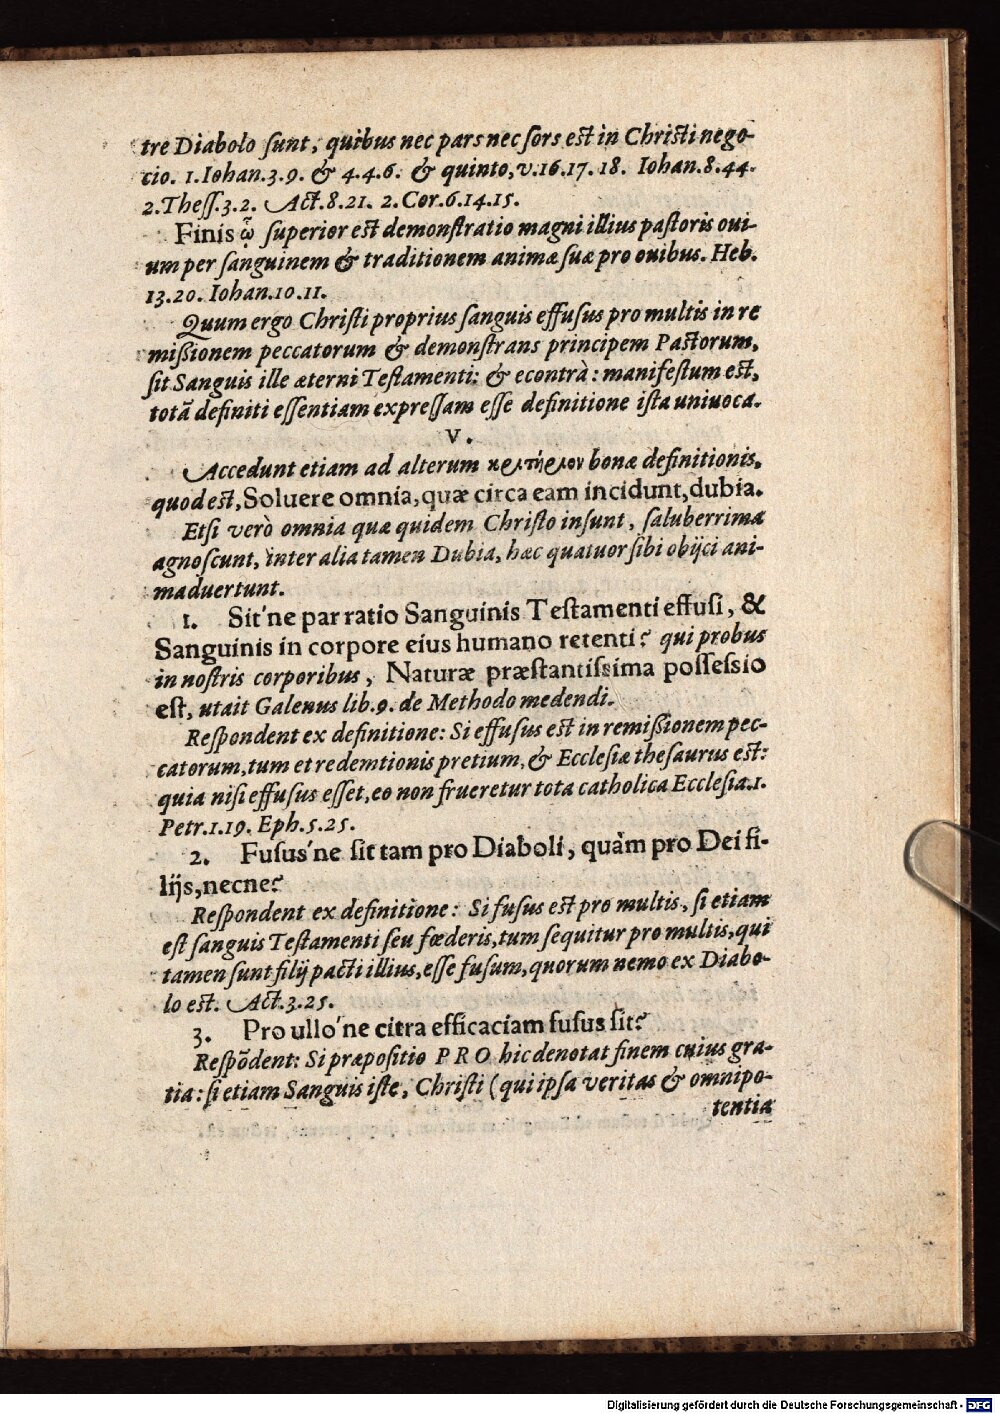 tre Diabolo ſunt, quibus nec pars nec ſors eſt in Chriſti nego-
cio. 1. Iohan. 3. 9. & 4. 4. 6. & quinto, v. 16. 17. 18. Iohan. 8. 44.
2. Theſſ. 3. 2. Act. 8. 21. 2. Cor. 6. 14. 15.
Finis ᾧ ſuperior eſt demonſtratio magni illius paſtoris oui-
um per ſanguinem & traditionem animæ ſuæ pro ouibus. Heb.
13. 20. Iohan. 10. 11.
Quum ergo Chriſti proprius ſanguis effuſus pro multis in re
miſsionem peccatorum & demonſtrans principem Paſtorum,
ſit Sanguis ille æterni Teſtamenti: & econtrà: manifeſtum eſt,
totā definiti eſſentiam expreſſam eſſe definitione iſta uniuoca.
V.
Accedunt etiam ad alterum κριτήριον bonæ definitionis,
quod eſt, Soluere omnia, quæ circa eam incidunt, dubia.
Etſi verò omnia quæ quidem Chriſto inſunt, ſaluberrima
agnoſcunt, inter alia tamen Dubia, hæc quatuor ſibi obijci ani-
maduertunt.
1. Sit'ne par ratio Sanguinis Teſtamenti effuſi, &
Sanguinis in corpore eius humano retenti? qui probus
in noſtris corporibus, Naturæ præſtantiſsima poſſeſsio
eſt, utait Galenus lib. 9. de Methodo medendi.
Reſpondent ex definitione: Si effuſus eſt in remiſsionem pec-
catorum, tum et redemtionis pretium, & Eccleſiæ theſaurus eſt:
quia niſi effuſus eſſet, eo non frueretur tota catholica Eccleſia. 1.
Petr. 1. 19. Eph. 5. 25.
2. Fuſus'ne ſit tam pro Diaboli, quàm pro Dei fi-
lijs, necne?
Reſpondent ex definitione: Si fuſus eſt pro multis, ſi etiam
eſt ſanguis Teſtamenti ſeu fœderis, tum ſequitur pro multis, qui
tamen ſunt filij pacti illius, eſſe fuſum, quorum nemo ex Diabo-
lo eſt. Act. 3. 25.
3. Pro ullo'ne citra efficaciam fuſus ſit?
Reſpōdent: Si præpoſitio PRO hic denotat finem cuius gra-
tia: ſi etiam Sanguis iſte, Chriſti (qui ipſa veritas & omnipo-
tentia
Digitalisierung gefördert durch die Deutsche Forschungsgemeinschaft - DFG